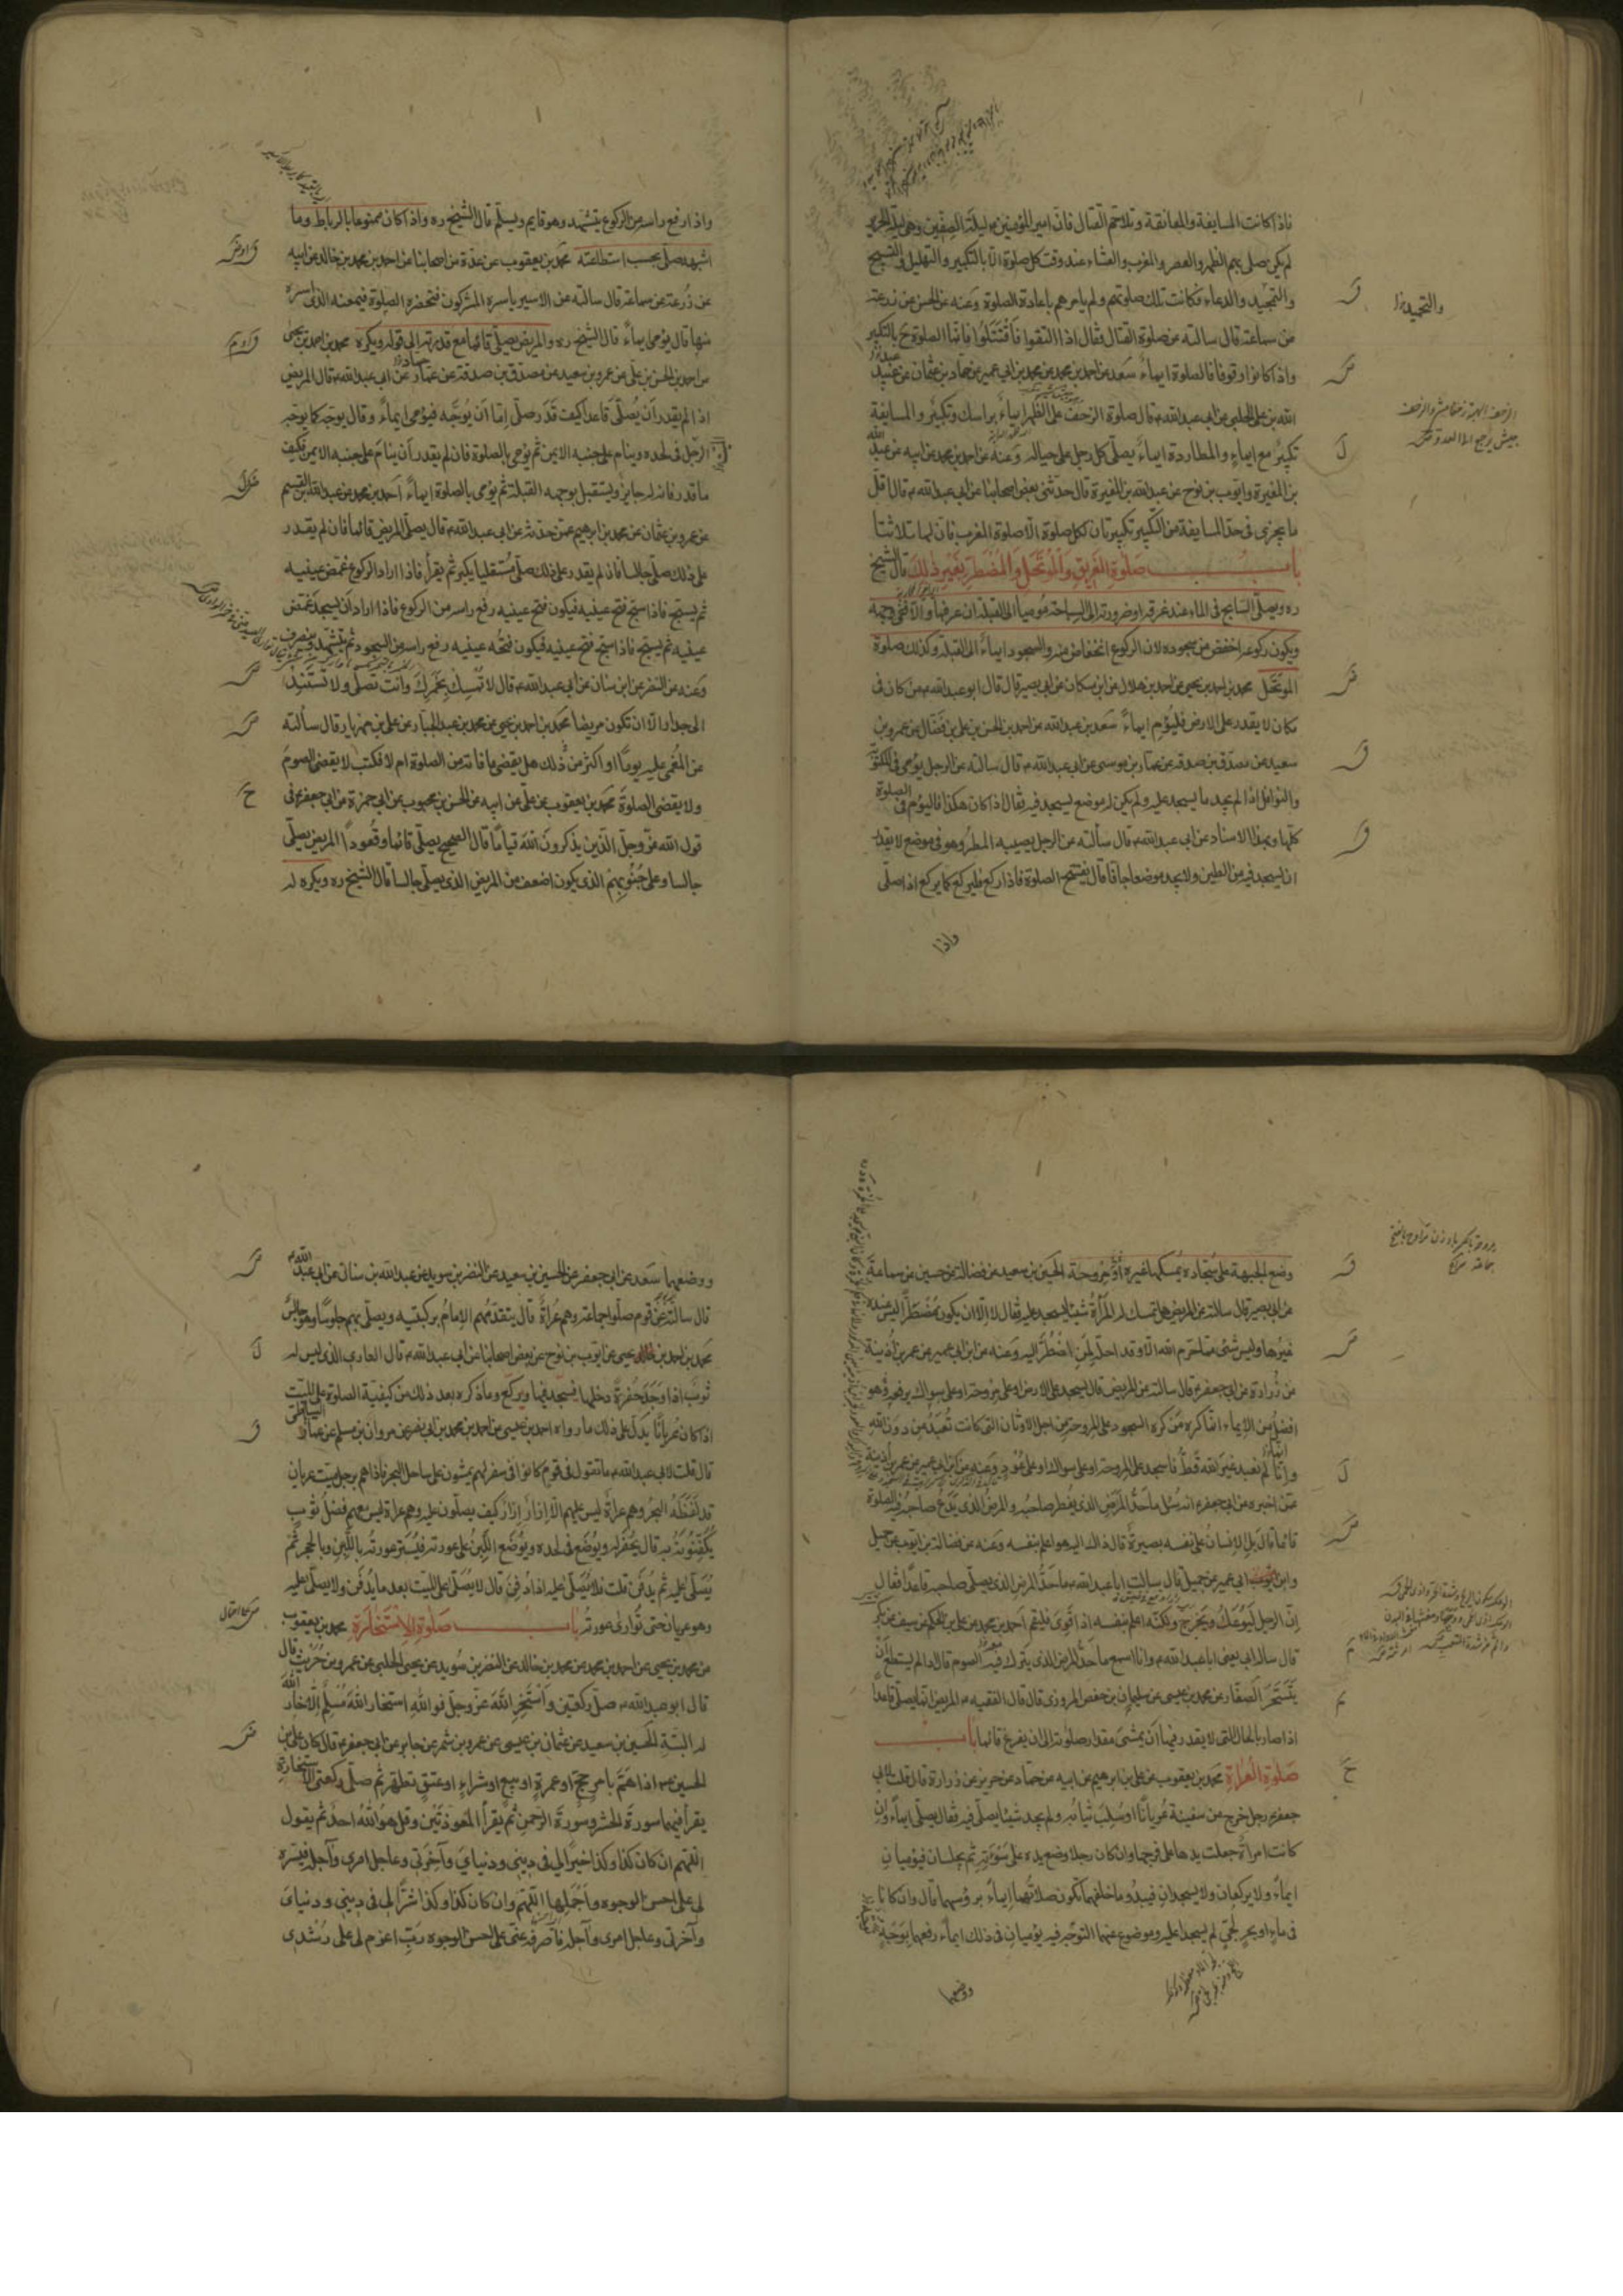 فاذا كانت المسايفة والمعانقة وتلاحم القتال فان امير المؤمنين ع ليلة الصفين وهى ليلة الهرير
لم يكن صلى بهم الظهر والعصر والمغرب والعشاء عند وقت كل صلوة الا بالتكبير والتهليل والتسبيح
والتمجيد والدعاء فكانت تلك صلوتهم ولم يامرهم باعادة الصلوة وعنه عن الحسن عن زرعة
عن سماعة قال سالته عن صلوة القتال فقال اذا التقوا فاقتتلوا فانما الصلوة ح بالتكبير
واذا كانوا وقوفا فالصلوة ايماء سعد عن احمد بن محمد عن محمد بن ابي عمير عن حماد بن عثمان عن عبيد
الله بن على الحلبى عن ابى عبد الله ع قال صلوة الزحف على الظهر ايماء براسك وتكبير والمسايفة
تكبير مع ايماء والمطاردة ايماء يصلى كل رجل على حياله وعنه عن احمد بن محمد عن ابيه عن عبد الله
بن المغيرة وايوب بن نوح عن عبد الله بن المغيرة قال حدثنى بعض اصحابنا عن ابى عبد الله ع قال اقل
ما يجزى فى حد المسايفة من التكبير تكبيرتان لكل صلوة الا صلوة المغرب فان لها ثلاثا
باب صلوة الغريق والموتحل والمضطر بغير ذلك قال الشيخ
ره ويصلى السابح فى الماء عند غرقه او ضرورته الى السباحة مؤميا الى القبلة ان عرفها والا ففى وجهه
ويكون ركوعه اخفض من سجوده لان الركوع انخفاض منه والسجود ايماء الى القبلة وكذلك صلوة
الموتحل محمد بن احمد بن يحيى عن احمد بن هلال عن ابن مسكان عن ابى بصير قال قال ابو عبد الله ع من كان فى
مكان لا يقدر على الارض فليؤم ايماء سعد بن عبد الله عن احمد بن الحسن بن على بن فضال عن عمرو بن
سعيد عن مصدق بن صدقة عن عمار بن موسى عن ابى عبد الله ع قال سالته عن الرجل يومى فى المكتوبة
والنوافل اذا لم يجد ما يسجد عليه ولم يكن له موضع يسجد فيه فقال اذا كان هكذا فليؤم فى الصلوة
كلها وبهذا الاسناد عن ابى عبد الله ع قال سألته عن الرجل يصيبه المطر وهو فى موضع لا يقدر
ان يسجد فيه من الطين ولا يجد موضعا جافا قال يفتتح الصلوة فاذا ركع فليركع كما يركع اذا صلى
واذا
واذا رفع راسه من الركوع يتشهد وهو قايم ويسلم قال الشيخ ره واذا كان ممنوعا بالرباط وما
اشبهه صلى بحسب استطاعته محمد بن يعقوب عن عدة من اصحابنا عن احمد بن محمد بن خالد عن ابيه
عن زرعة عن سماعة قال سالته عن الاسير ياسره المشركون فتحضره الصلوة فيمنعه الذى اسره
منها قال يؤمى ايماء قال الشيخ ره والمريض يصلى قائما مع قدرته الى قوله ويكره محمد بن احمد بن يحيى
عن احمد بن الحسن بن على عن عمرو بن سعيد عن مصدق بن صدقة عن عمار عن ابى عبد الله ع قال المريض
اذا لم يقدر ان يصلى قاعدا كيف قدر صلى اما ان يوجه فيؤمى ايماء وقال يوجه كما يوجه
الرجل فى لحده وينام على جنبه الايمن ثم يؤمى بالصلوة فان لم يقدر أن ينام على جنبه الايمن فكيف
ما قدر فانه له جايز ويستقبل بوجهه القبلة ثم يؤمى بالصلوة ايماء احمد بن محمد عن عبد الله بن القسيم
عن عمرو بن عثمان عن محمد بن ابرهيم عمن حدثه عن ابى عبد الله ع قال يصلى المريض قائما فان لم يقدر
على ذلك صلى جالسا فان لم يقدر على ذلك صلى مستلقيا يكبر ثم يقرأ فاذا اراد الركوع غمض عينيه
ثم يسبح فاذا سبح فتح عينيه فيكون فتح عينيه رفع راسه من الركوع فاذا اراد ان يسجد غمض
عينيه ثم يسبح فاذا سبح فتح عينيه فيكون فتحه عينيه رفع راسه من السجود ثم يتشهد وينصرف
وعنه عن النضر عن ابن سنان عن ابى عبد الله ع قال لا تمسك بخمرك وانت تصلى ولا تستند
الى جدار الا ان تكون مريضا محمد بن احمد بن يحيى عن محمد بن عبد الجبار عن على بن مهزيار قال سألته
عن المغمى عليه يوما او اكثر من ذلك هل يقضى ما فاته من الصلوة ام لا فكتب لا يقضى الصوم
ولا يقضى الصلوة محمد بن يعقوب عن على عن ابيه عن الحسن بن محبوب عن ابى حمزة عن ابى جعفر ع فى
قول الله عز وجل الذين يذكرون الله قياما قال الصحيح يصلى قائما وقعودا المريض يصلى
جالسا وعلى جنوبهم الذى يكون اضعف من المريض الذى يصلى جالسا قال الشيخ ره ويكره له
وضع الجبهة على سجادة يمسكها غيره او مروحة الحسين بن سعيد عن فضالة عن حسين عن سماعة
عن ابى بصير قال سالته عن المريض هل تمسك له المرأة شيئا يسجد عليه فقال لا الا ان يكون مضطرا ليس عنده
غيرها وليس شئ مما حرم الله الا وقد احله لمن اضطر اليه وعنه عن ابن ابى عمير عن عمر بن اذينة
عن زرارة عن ابى جعفر ع قال سالته عن المريض قال يسجد على الارض او على مروحة او على سواك يرفعه وهو
افضل من الايماء انما كره من كره السجود على المروحة من اجل الاوثان التى كانت تعبد من دون الله
وانا لم نعبد غير الله قط فاسجد على المروحة او على سواك او على عود وعنه عن ابن ابى عمير عن عمر بن أذينة
عمن اخبره عن ابى جعفر ع انه سئل ما حد المرض الذى يفطر صاحبه والمرض الذى يدع صاحبه فيه الصلوة
قائما قال بل الانسان على نفسه بصيرة قال ذاك اليه هو اعلم بنفسه وعنه عن فضالة بن ايوب عن جميل
وابن ابى عمير عن جميل قال سالت ابا عبد الله ع ما حد المرض الذى يصلى صاحبه قاعدا فقال
إن الرجل ليوعك ويحرج ولكنه اعلم بنفسه اذا قوى فليقم احمد بن محمد عن على بن الحكم عن سيف عن بكر
قال سال ابى يعنى ابا عبد الله ع وانا اسمع ما حد المرض الذى يترك فيه الصوم قال اذا لم يستطع أن
يتسحر الصفار عن محمد بن عيسى عن سليمان بن حفص المروزى قال قال الفقيه ع المريض انما يصلى قاعدا
اذا صار بالحال التى لا يقدر فيها أن يمشى مقدار صلوته الى ان يفرغ قائما باب
صلوة العراة محمد بن يعقوب عن على بن ابرهيم عن ابيه عن حماد عن حريز عن زرارة قال قلت لابى
جعفر ع رجل خرج من سفينة عريانا او سلب ثيابه ولم يجد شيئا يصلى فيه فقال يصلى ايماء وان
كانت امرأة جعلت يدها على فرجها وان كان رجلا وضع يده على سوءته ثم يجلسان فيؤميان
ايماء ولا يركعان ولا يسجدان فيبدو ما خلفهما تكون صلاتهما إيماء برؤسهما قال وان كانا
فى ماء او بحر لجى لم يسجدا عليه وموضوع عنهما التوجه فيه يؤميان فى ذلك ايماء رفعهما توجه
ووضعهما
ووضعهما سعد عن ابى جعفر عن الحسين بن سعيد عن النضر بن سويد عن عبد الله بن سنان عن ابى عبد الله ع
قال سالته عن قوم صلوا جماعة وهم عراة قال يتقدمهم الامام بركبتيه ويصلى بهم جلوسا وهو جالس
محمد بن احمد بن يحيى عن ايوب بن نوح عن بعض اصحابنا عن ابى عبد الله ع قال العارى الذى ليس له
ثوب اذا وجد حفرة دخلها فسجد فيها ويركع وما ذكره بعد ذلك من كيفية الصلوة على الميت
اذا كان عريانا يدل على ذلك ما رواه احمد بن محمد بن عيسى عن احمد بن محمد بن ابى نصر عن مروان بن مسلم عن عمار الساباطى
قال قلت لابى عبد الله ع ما تقول فى قوم كانوا فى سفر لهم يمشون على ساحل البحر فاذا هم برجل ميت عريان
قد لفظه البحر وهم عراة ليس عليهم الا إزار إزار كيف يصلون عليه وهم عراة ليس معهم فضل ثوب
يكفنونه به قال يحفر له ويوضع فى لحده ويوضع اللبن على عورته فيستر عورته باللبن وبالحجر ثم
يصلى عليه ثم يدفن قلت فلا يصلى عليه اذا دفن قال لا يصلى على الميت بعد ما يدفن ولا يصلى عليه
وهو عريان حتى توارى عورته باب صلوة الاستخارة محمد بن يعقوب
عن محمد بن يحيى عن احمد بن محمد عن محمد بن خالد عن النضر بن سويد عن يحيى الحلبى عن عمرو بن حريث قال
قال ابو عبد الله ع صل ركعتين واستخر الله عز وجل فو الله ما استخار الله مسلم الا خار الله
له البتة الحسين بن سعيد عن عثمان بن عيسى عن عمرو بن شمر عن جابر عن ابى جعفر ع قال كان على بن
الحسين ع اذا هم بامر حج او عمرة او بيع او شراء او عتق تطهر ثم صلى ركعتى الاستخارة
يقرأ فيهما سورة الحشر وسورة الرحمن ثم يقرأ المعوذتين وقل هو الله احد ثم يقول
اللهم ان كان كذا وكذا خيرا لى فى دينى ودنياى وآخرتى وعاجل امرى وآجله فيسره
لى على احسن الوجوه واجملها اللهم وان كان كذا وكذا شرا لى فى دينى ودنياى
وآخرتى وعاجل امرى وآجله فاصرفه عنى على احسن الوجوه رب اعزم لى على رشدى